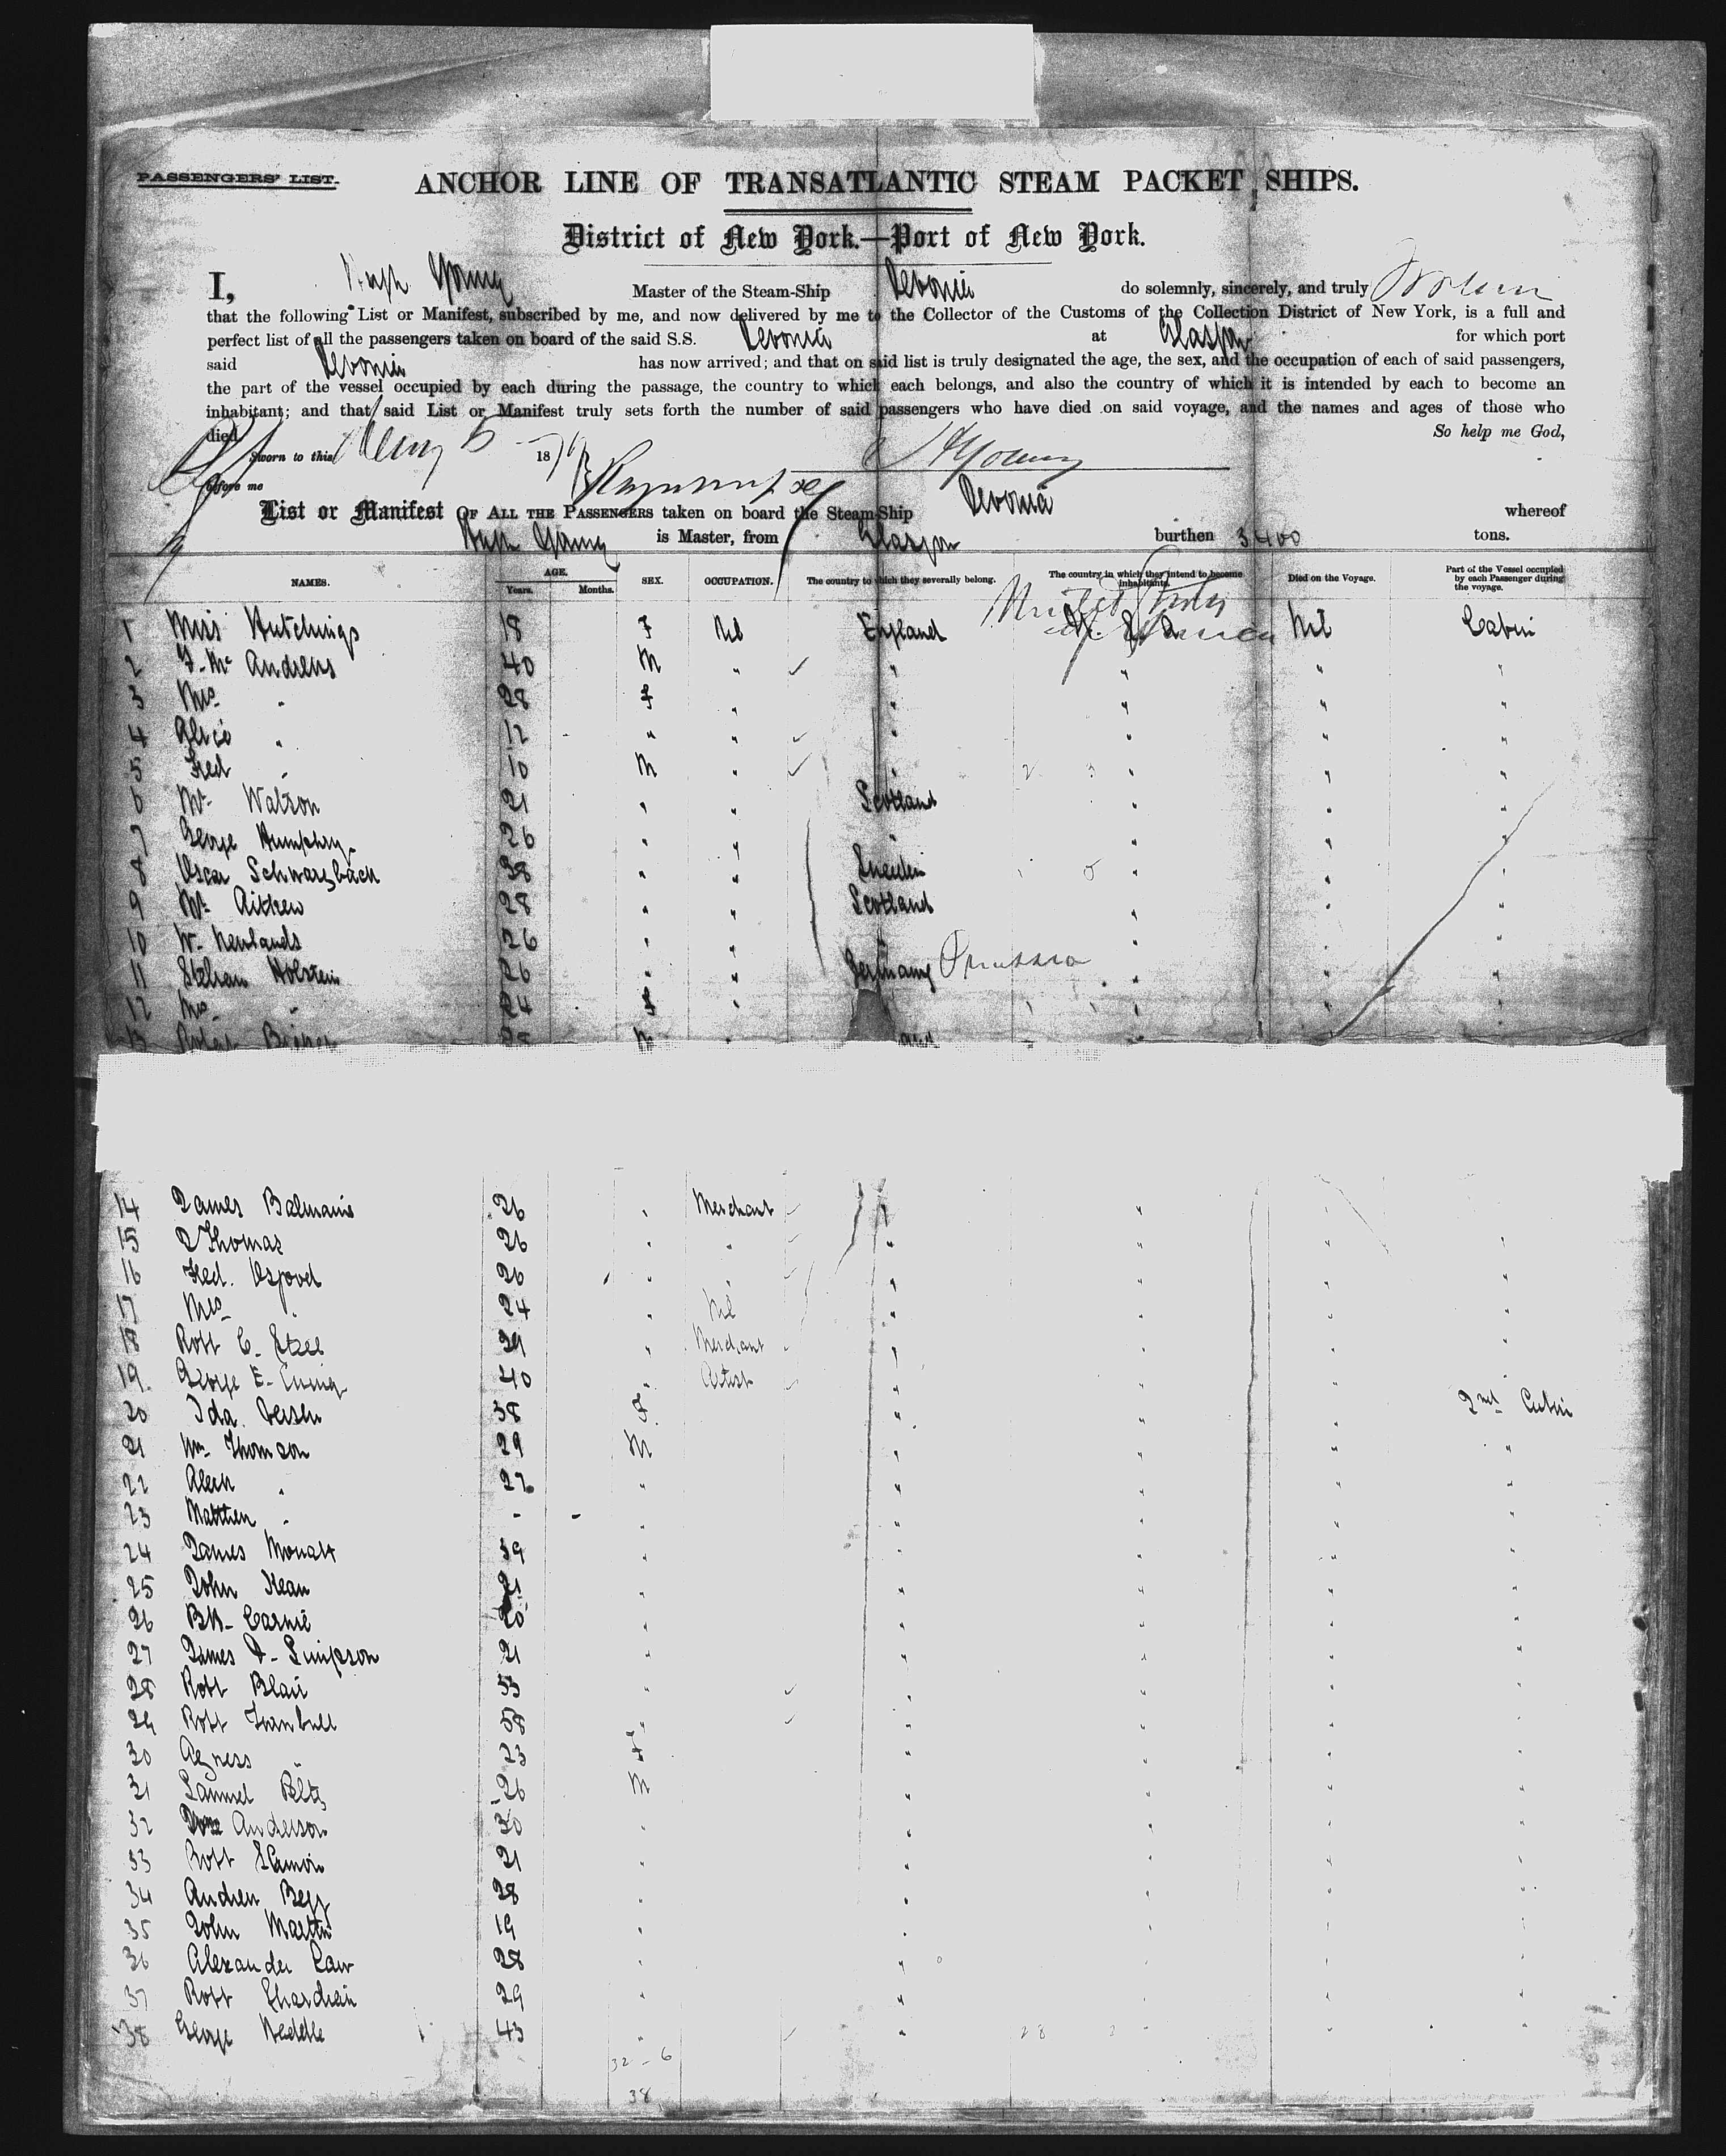 PASSENGERS' LIST.
ANCHOR LINE OF TRANSATLANTIC STEAM PACKET SHIPS.
District of New York.—Port of New York.
I, Hugh Young Master of the Steam-Ship Devonia do solemnly, sincerely, and truly
that the following List or Manifest, subscribed by me, and now delivered by me to the Collector of the Customs of the Collection District of New York, is a full and
perfect list of all the passengers taken on board of the said S.S. Devonia at Glasgow for which port
said Devonia has now arrived; and that on said list is truly designated the age, the sex, and the occupation of each of said passengers,
the part of the vessel occupied by each during the passage, the country to which each belongs, and also the country of which it is intended by each to become an
inhabitant; and that said List or Manifest truly sets forth the number of said passengers who have died on said voyage, and the names and ages of those who
died. So help me God,
Sworn to this 187 H Young
before me
List or Manifest OF ALL THE PASSENGERS taken on board the Steam-Ship Devonia whereof
Hugh Young is Master, from Glasgow burthen 3400 tons.
NAMES. AGE. Years. Months. SEX. OCCUPATION. The country to which they severally belong. The country in which they intend to become inhabitants. Died on the Voyage. Part of the Vessel occupied by each Passenger during the voyage.
United States
1 Miss Hutchings 18 F Nil England Nil Cabin
2 F. Mc Andrews 40 M " " " " "
3 Mrs " 28 F " " " " "
4 Alice " 12 " " " " " "
5 Fred " 10 M " " " " "
6 Mr Watson 21 " " Scotland " " "
7 George Humphry 26 " " " " " "
8 Oscar Schwarzbach 38 " " Sweden " " "
9 Mr Aitken 28 " " Scotland " " "
10 W. Newlands 26 " " " " " "
11 Holstein 26 " " Germany Prussia " " "
12 Mrs " 24 F " " " "
13 M
14 James Balmain 26 " Merchant " " "
15 J Thomas 26 " " " " " "
16 Fred. Osgood 26 " " " " " "
17 Mrs " 24 " Nil " " " "
18 Robt C. 29 " Merchant " " " "
19 George E. Ewing 40 " Artist " " " "
20 Ida 38 F " " " 2nd Cabin
21 Wm Thomson 29 M " " " "
22 Alexr " 27 " " " " "
23 Matthew " - " " " " "
24 James Mouatt 39 " " " " "
25 John Kean 21 " " " " "
26 Carnie 20 " " " " "
27 James Simpson 21 " " " " "
28 Robt Blair 33 " " " " "
29 Robt Turnbull 38 " " " " "
30 Agness " 23 F " " " "
31 Samuel 26 M " " " "
32 Anderson 30 " " " " "
33 Robt 21 " " " " "
34 Andrew Begg 28 " " " " "
35 John Martin 19 " " " " "
36 Alexander Law 28 " " " " "
37 Robt 29 " " " " "
38 George 43 " " " " "
32 - 6
38